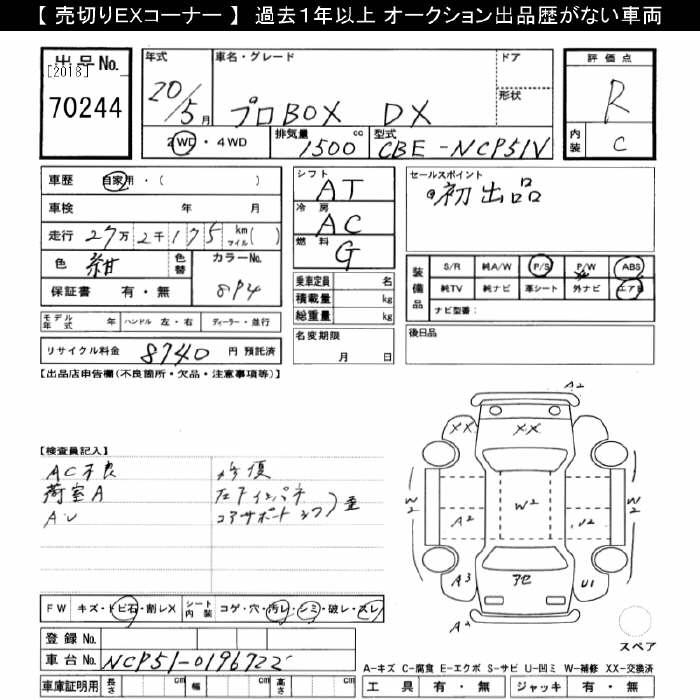 【 売切りEXコーナー 】 過去1年以上 オークション出品歴がない車両
出品No.
[2018]
70244
年式 車名・グレード ドア
20/5月 プロBOX DX
形状
2WD・4WD 排気量 1500 cc 型式 CBE-NCP51V
評価点
R
内装 C
車歴 自家用・( )
車検 年 月
走行 27万2千175 km マイル( )
色 紺 色替 カラーNo. 8P4
保証書 有・無
モデル年式 年 ハンドル 左・右 ディーラー・並行
リサイクル料金 8740 円 預託済
シフト AT
冷房 AC
燃料 G
乗車定員 名
積載量 kg
総重量 kg
名変期限
月 日
セールスポイント
初出品
装備品
S/R 純A/W P/S P/W ABS
純TV 純ナビ 革シート 外ナビ エアB
ナビ型番:
後日品
【出品店申告欄(不良箇所・欠品・注意事項等)】
【検査員記入】
AC不良 修復
荷室A
AU コアサポート
A2
XX XX
W2 A2 W2 U2 W2
A3 U1
スペア
FW キズ・トビ石・割レX シート内装 コゲ・穴・汚レ・シミ・破レ・スレ
登録No.
車台No. NCP51-0196722
車庫証明用 長さ cm 幅 cm 高さ cm
A-キズ C-腐食 E-エクボ S-サビ U-凹ミ W-補修 XX-交換済
工具 有・無 ジャッキ 有・無